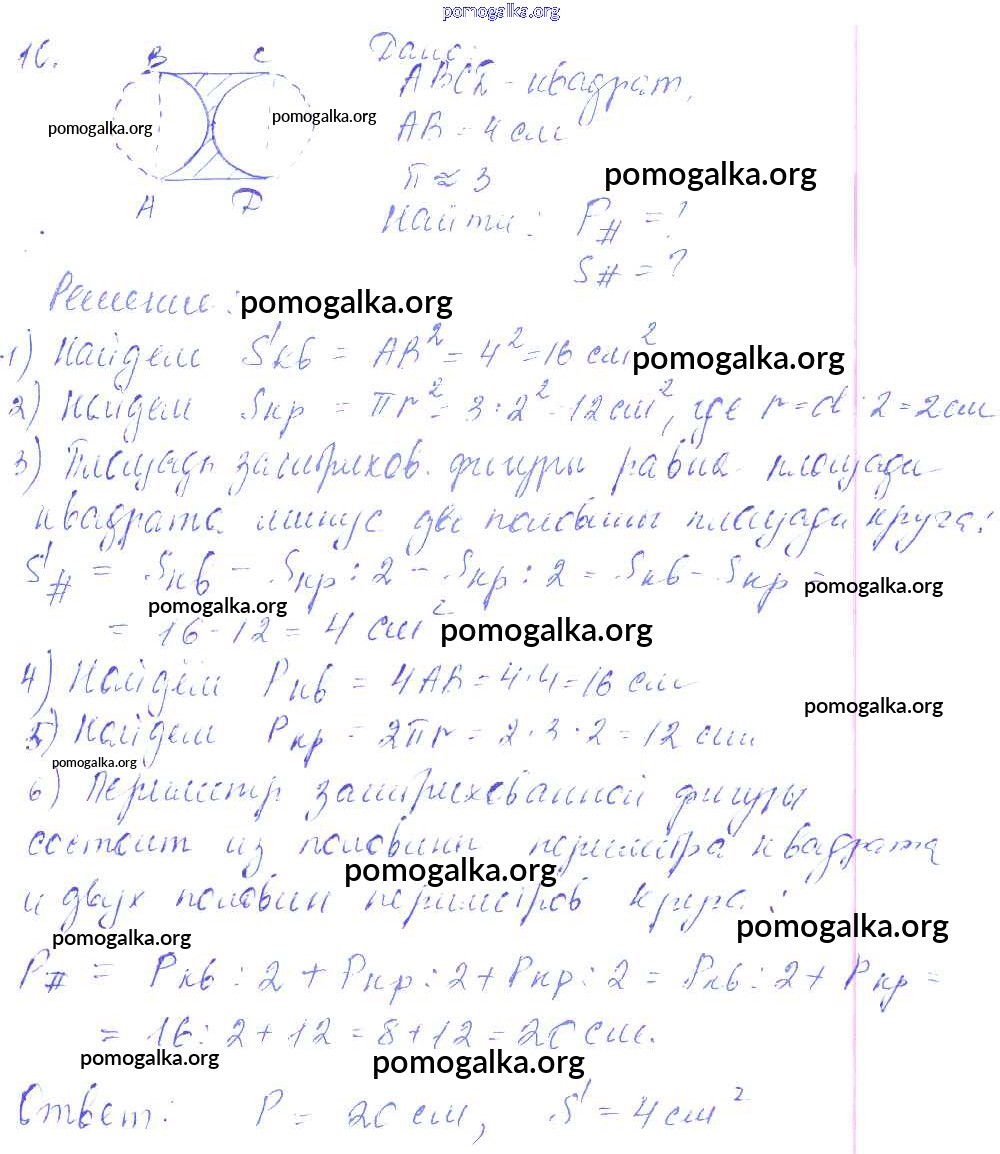 pomogalka.org
16.
B C
Дано:
ABCD - квадрат,
pomogalka.org pomogalka.org
AB = 4 см
π ≈ 3
pomogalka.org
A D
Найти: P# = ?
S# = ?
Решение:
pomogalka.org
1) Найдем Sкв = AB² = 4² = 16 см²
pomogalka.org
2) Найдем Sкр = πr² = 3·2² = 12 см², где r = d : 2 = 2 см
3) Площадь заштрихов. фигуры равна площади
квадрата минус две половины площади круга:
S# = Sкв - Sкр : 2 - Sкр : 2 = Sкв - Sкр =
pomogalka.org
pomogalka.org
= 16 - 12 = 4 см²
pomogalka.org
4) Найдём Pкв = 4AB = 4·4 = 16 см
pomogalka.org
5) Найдем Pкр = 2πr = 2·3·2 = 12 см.
pomogalka.org
6) Периметр заштрихованной фигуры
состоит из половины периметра квадрата
pomogalka.org
и двух половин периметров круга:
pomogalka.org
pomogalka.org
P# = Pкв : 2 + Pкр : 2 + Pкр : 2 = Pкв : 2 + Pкр =
= 16 : 2 + 12 = 8 + 12 = 20 см.
pomogalka.org
pomogalka.org
Ответ: P = 20 см, S = 4 см²